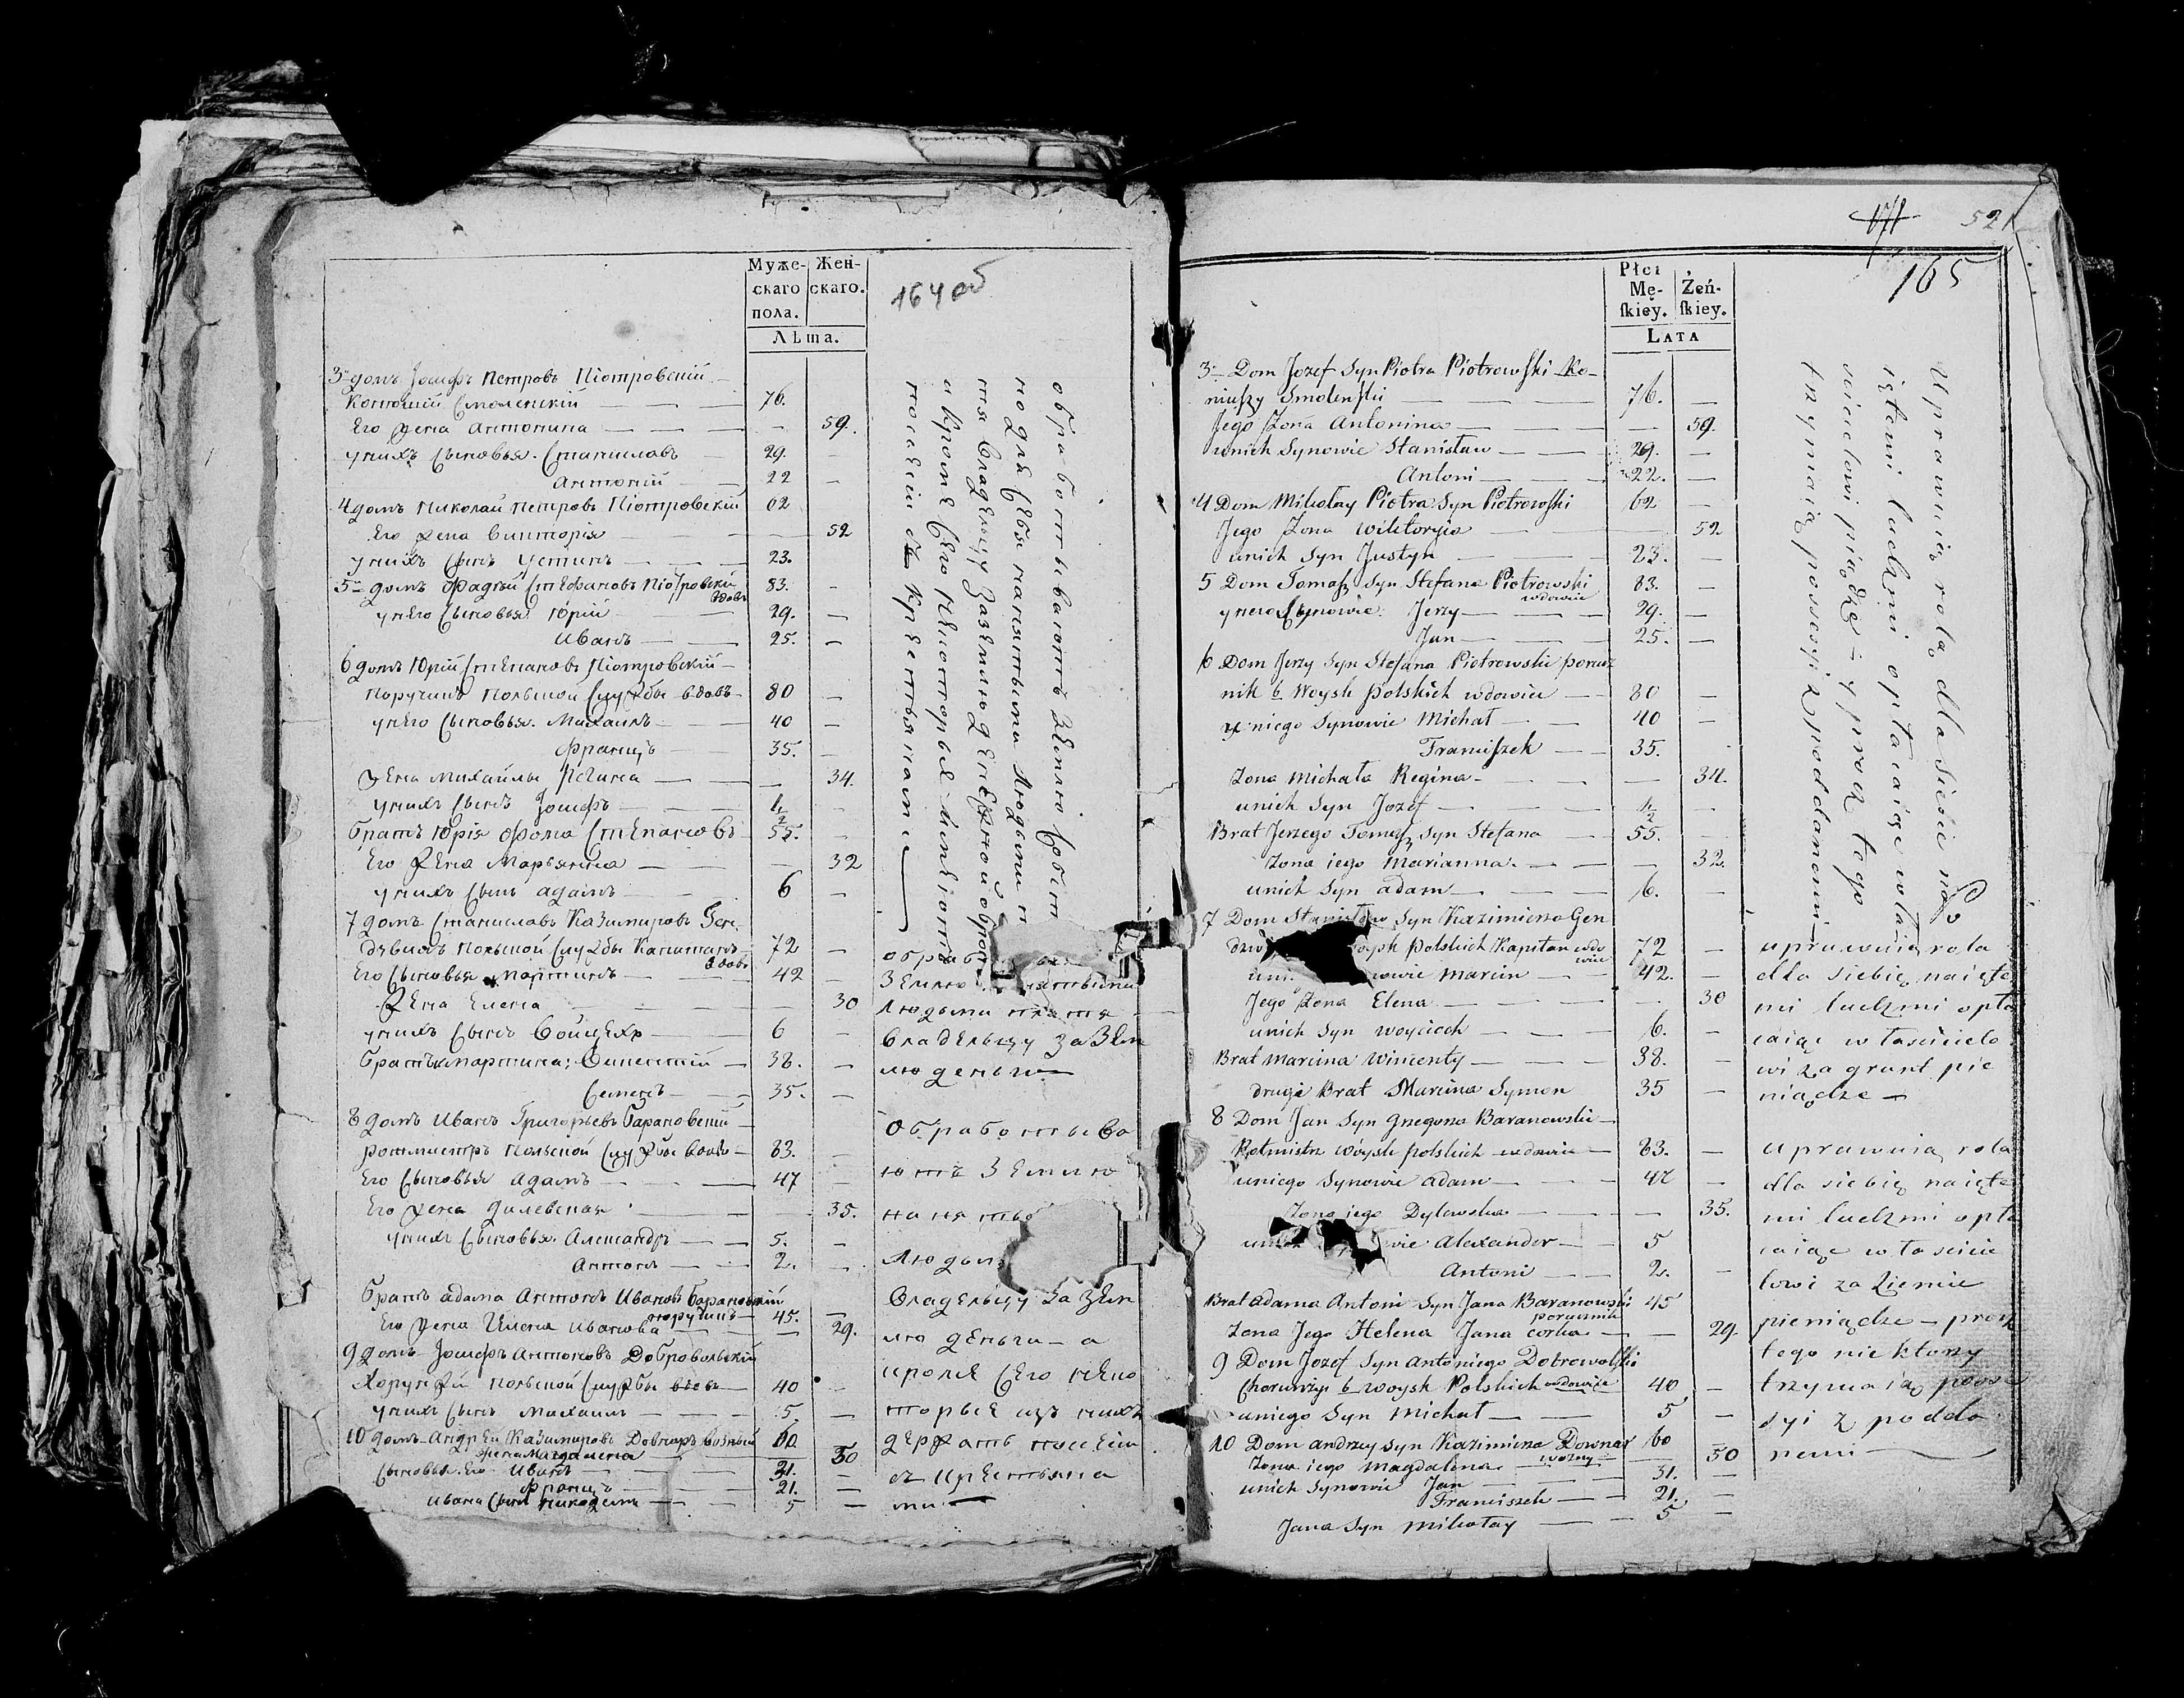 Муже-
скаго
пола.
Жен-
скаго.
Лѣта.
164 об
3й домъ Іосифъ Петровъ Піотровскій
Конюшій Смоленскій 76.
Его жена Антонина 59.
у нихъ сыновья. Станиславъ 29.
Антоній 22
4 домъ Николай Петровъ Піотровскій 62
Его жена Викторія 52
у нихъ сынъ Устинъ 23.
5й домъ Фадѣй Стефановъ Піотровскій вдовъ 83.
у него сыновья Юрій 29.
Иванъ 25.
6 домъ Юрій Степановъ Піотровскій
поручикъ польской службы вдовъ 80
у него сыновья. Михаилъ 40
Францъ 35.
жена Михайлы Регина 34.
у нихъ сынъ Іосифъ 1/2
братъ Юрія Фома Степановъ 55.
Его жена Марьянна 32
у нихъ сынъ Адамъ 6
7 домъ Станиславъ Казимировъ Ген
дзвилъ польской службы Капитанъ вдовъ 72
Его сыновья Мартинъ 42
жена Елена 30
у нихъ сынъ Войцехъ 6
братья Мартина: Викентій 38.
Семенъ 35.
8 домъ Иванъ Григорьевъ Барановскій
ротмистръ польской службы вдовъ 83.
Его сыновья Адамъ 47
Его жена Дилевская 35.
у нихъ сыновья. Александръ 5.
Антонъ 2.
братъ Адама Антонъ Ивановъ Барановскій
поручикъ 45.
Его жена Елена Иванова 29.
9 домъ Іосифъ Антоновъ Добровольскій
Хорунжій польской службы вдовъ 40
у нихъ сынъ Михаилъ 5
10 домъ Андрей Казимировъ Довнаръ возный 60
жена Магдалена 50
сыновья Его Иванъ 31.
Францъ 21.
Ивана сынъ Никодимъ 5
обработываютъ землю собствен
но для себя нанятыми людьми п
тя владельцу за землю денежной оброк
а кроме сего некоторыя имеютъ
посесіи съ крестьянами
обраб
землю нятыми
людьми платя
владельцу за зем
лю деньги
Обработыва
ютъ землю
наняты
людьм
владельцу за зем
лю деньги а
кроме сего неко
торые изъ нихъ
держатъ посесіи
съ крестьяна
ми
Płci
Mę-
ſkiey.
Żeń-
ſkiey.
LATA
171
521
165
3 Dom Jozef Syn Piotra Piotrowſki Ko-
niuſzy Smolenſki 76.
Jego Żona Antonina 59.
u nich Synowie Stanisław 29.
Antoni 22.
4 Dom Mikołay Piotra Syn Piotrowſki 62
Jego Żona Wiktorya 52
u nich Syn Justyn 23.
5 Dom Tomaſz Syn Stefana Piotrowski wdowiec 83.
u niego Synowie: Jerzy 29.
Jan 25.
6 Dom Jerzy Syn Stefana Piotrowski porucz
nik b Woysk polskich wdowiec 80
u niego Synowie Michał 40
Franciſzek 35.
Żona Michała Regina 34.
u nich Syn Jozef 1/2
Brat Jerzego Tomaſz Syn Stefana 55.
Żona iego Marianna 32.
u nich Syn Adam 6.
7 Dom Stanisław Syn Kazimierza Gen
dzw oysk polskich Kapitan wdowiec 72
uni nowie Marcin 42.
Jego Żona Elena 30
u nich Syn Woyciech 6.
Brat Marcina Wincenty 38.
drugi Brat Marcina Symon 35
8 Dom Jan Syn Grzegorza Baranowski
Rotmistrz woysk polskich wdowiec 83.
u niego Synowie Adam 47
Żona iego Dylewska 35.
u nich wie Alexander 5
Antoni 2.
Brat Adama Antoni Syn Jana Baranowski
porucznik 45
Żona Jego Helena Jana corka 29.
9 Dom Jozef Syn Antoniego Dobrowolſki
Chorunżyi b woysk Polskich wdowiec 40
u niego Syn Michał 5
10 Dom Andrzey Syn Kazimierza Downar 60
Żona iego Magdalena woźny 50
u nich Synowie Jan 31.
Franciszek 21.
Jana Syn Mikołay 5
Uprawnią rolą dla siebie na
iętemi ludzmi opłacaiąc właś
cicielowi pieniądze i procz tego
trzymaią possesyi z poddanemi
uprawnią rola
dla siebię naięte
mi ludzmi opła
caiąc właściciele
wi za grunt pie
niądze
uprawnią rola
dla siebię naięte
mi ludzmi opła
caiąc właścicie
lowi za ziemie
pieniądze procz
tego nie ktorzy
trzymaią posse
syi z podda
nemi